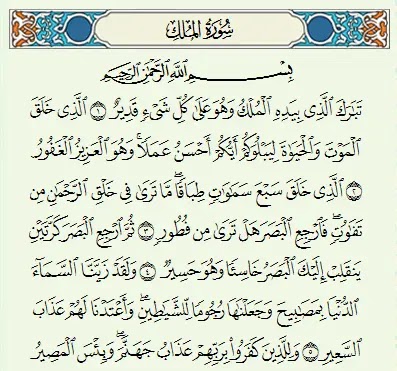 سُورَةُ الْمُلْكِ
بِسْمِ اللَّهِ الرَّحْمَٰنِ الرَّحِيمِ
تَبَٰرَكَ ٱلَّذِى بِيَدِهِ ٱلْمُلْكُ وَهُوَ عَلَىٰ كُلِّ شَىْءٍ قَدِيرٌ ١ ٱلَّذِى خَلَقَ
ٱلْمَوْتَ وَٱلْحَيَوٰةَ لِيَبْلُوَكُمْ أَيُّكُمْ أَحْسَنُ عَمَلًا ۚ وَهُوَ ٱلْعَزِيزُ ٱلْغَفُورُ
٢ ٱلَّذِى خَلَقَ سَبْعَ سَمَٰوَٰتٍ طِبَاقًا ۖ مَّا تَرَىٰ فِى خَلْقِ ٱلرَّحْمَٰنِ مِن
تَفَٰوُتٍ ۖ فَٱرْجِعِ ٱلْبَصَرَ هَلْ تَرَىٰ مِن فُطُورٍ ٣ ثُمَّ ٱرْجِعِ ٱلْبَصَرَ كَرَّتَيْنِ
يَنقَلِبْ إِلَيْكَ ٱلْبَصَرُ خَاسِئًا وَهُوَ حَسِيرٌ ٤ وَلَقَدْ زَيَّنَّا ٱلسَّمَآءَ
ٱلدُّنْيَا بِمَصَٰبِيحَ وَجَعَلْنَٰهَا رُجُومًا لِّلشَّيَٰطِينِ ۖ وَأَعْتَدْنَا لَهُمْ عَذَابَ
ٱلسَّعِيرِ ٥ وَلِلَّذِينَ كَفَرُوا۟ بِرَبِّهِمْ عَذَابُ جَهَنَّمَ ۖ وَبِئْسَ ٱلْمَصِيرُ